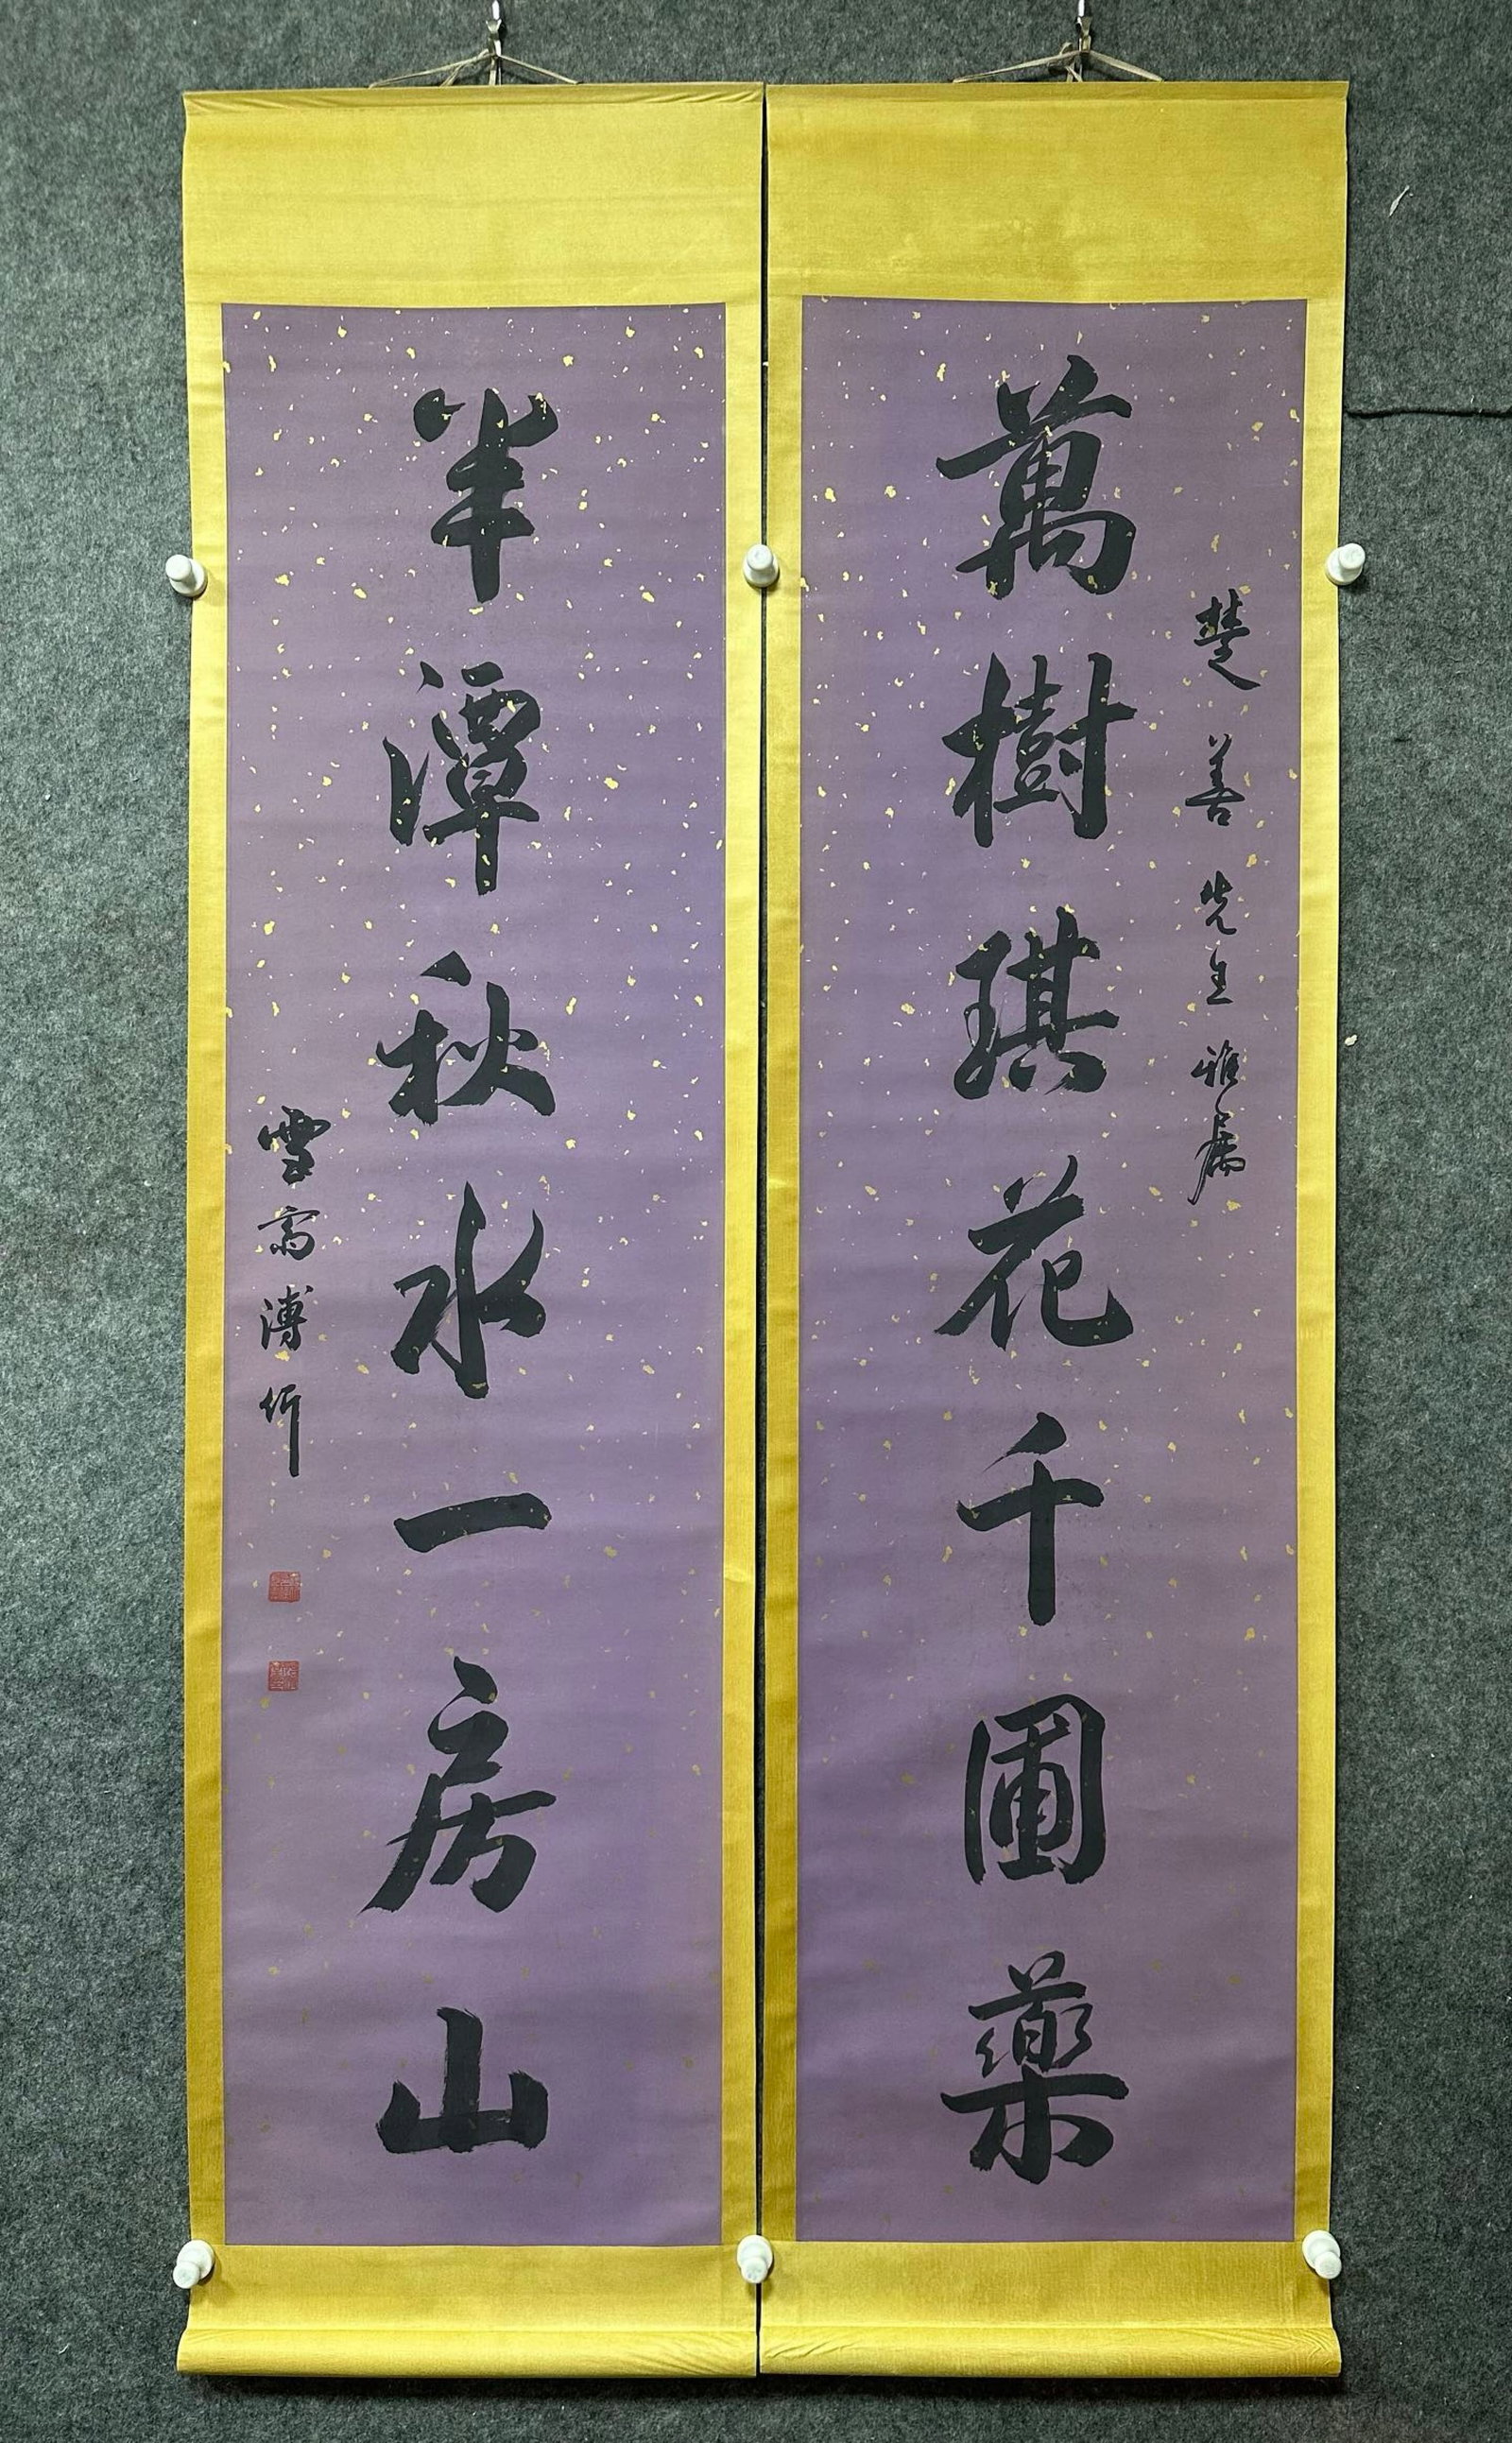 楚善先生雅屬
萬樹琪花千圃藥
半潭秋水一房山
雪齋溥伒